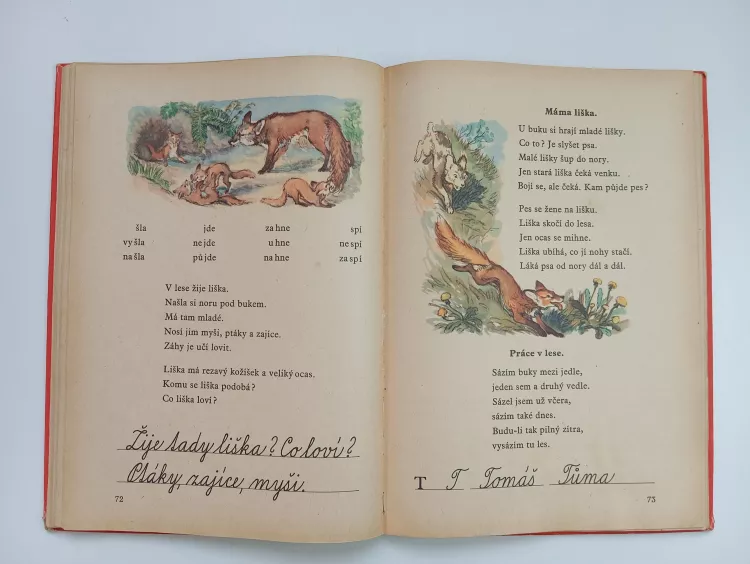 šla jde za hne spí
vy šla ne jde u hne ne spí
na šla pů jde na hne za spí
V lese žije liška.
Našla si noru pod bukem.
Má tam mladé.
Nosí jim myši, ptáky a zajíce.
Záhy je učí lovit.
Liška má rezavý kožíšek a veliký ocas.
Komu se liška podobá?
Co liška loví?
Žije tady liška? Co loví?
Ptáky, zajíce, myši.
72
Máma liška.
U buku si hrají mladé lišky.
Co to? Je slyšet psa.
Malé lišky šup do nory.
Jen stará liška čeká venku.
Bojí se, ale čeká. Kam půjde pes?
Pes se žene na lišku.
Liška skočí do lesa.
Jen ocas se mihne.
Liška ubíhá, co jí nohy stačí.
Láká psa od nory dál a dál.
Práce v lese.
Sázím buky mezi jedle,
jeden sem a druhý vedle.
Sázel jsem už včera,
sázím také dnes.
Budu-li tak pilný zítra,
vysázím tu les.
T T Tomáš Tůma
73